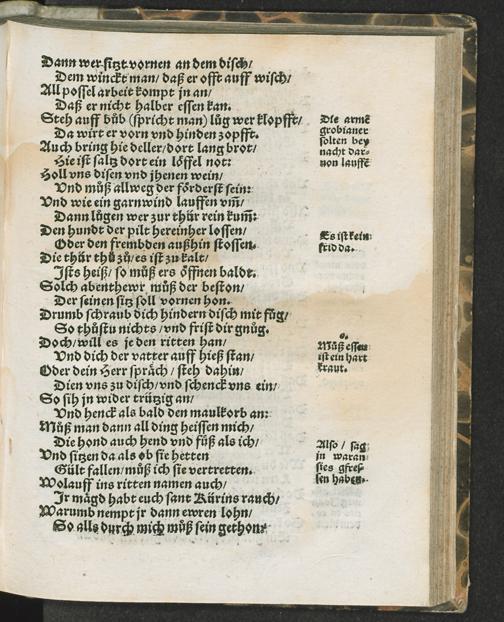 Dann wer sitzt vornen an dem disch/
Dem winckt man/ daß er offt auff wisch/
All possel arbeit kompt jn an/
Daß er nicht halber essen kan.
Steh auff bůb (spricht man) lůg wer klopfft/
Da wirt er vorn vnd hinden zopfft.
Auch bring hie deller/ dort lang brot/
Hie ist saltz dort ein löffel not:
Holl vns disen vnd jhenen wein/
Vnd můß allweg der förderst sein:
Vnd wie ein garnwind lauffen vm̃/
Dann lůgen wer zur thür rein kum̃:
Den hundt der pilt hereinher lossen/
Oder den frembden außhin stossen.
Die thür thů zů/ es ist zu kalt/
Ists heiß/ so můß ers öffnen baldt.
Solch abenthewr můß der beston/
Der seinen sitz soll vornen hon.
Drumb schraub dich hindern disch mit fůg/
So thůstu nichts/ vnd frist dir gnůg.
Doch/ will es je den ritten han/
Vnd dich der vatter auff hieß stan/
Oder dein Herr spräch/ steh dahin/
Dien vns zu disch/ vnd schenck vns ein/
So sih jn wider trützig an/
Vnd henck als bald den maulkorb an:
Můß man dann all ding heissen mich/
Die hond auch hend vnd füß als ich/
Vnd sitzen da als ob sie hetten
Gült fallen/ můß ich sie vertretten.
Wolauff ins ritten namen auch/
Jr mägd habt euch sant Kürins rauch/
Warumb nempt jr dann ewren lohn/
So alls durch mich můß sein gethon:
Die armẽ
grobianer
solten bey
nacht dar-
von lauffẽ
Es ist kein
frid da.
o.
Můß essen
ist ein hart
kraut.
Also/ sag
jn waran
sies gfres-
sen haben.